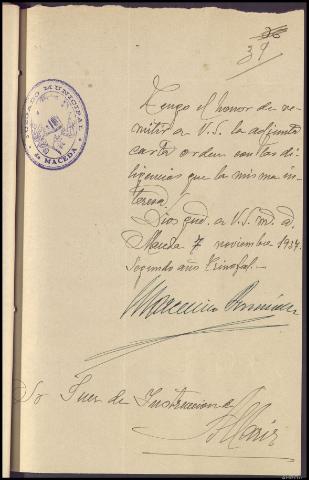 39
JUZGADO MUNICIPAL
de MACEDA
Tengo el honor de re-
mitir a V.S. la adjunta
carta orden con las di-
ligencias que la misma in-
teresa.
Dios gue. a V.S. m. a.
Maceda 7 noviembre 1937.
Segundo año Triunfal.-
Sr Juez de Instruccion de